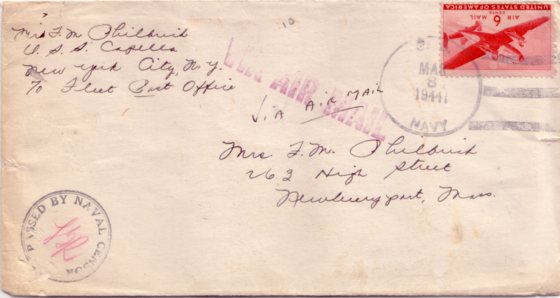 Mrs F. M. Philbrick
U. S. S. Capella
New York City, N.Y.
℅ Fleet Post Office
10
VIA AIR MAIL
VIA AIR MAIL
AIR MAIL
6
CENTS
UNITED STATES OF AMERICA
MAR
8
1944
NAVY
Mrs. F. M. Philbrick
263 High Street
Newburyport, Mass.
BY NAVAL CENSOR